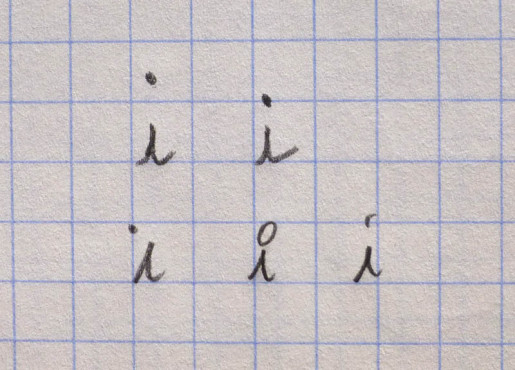 i i
i i i